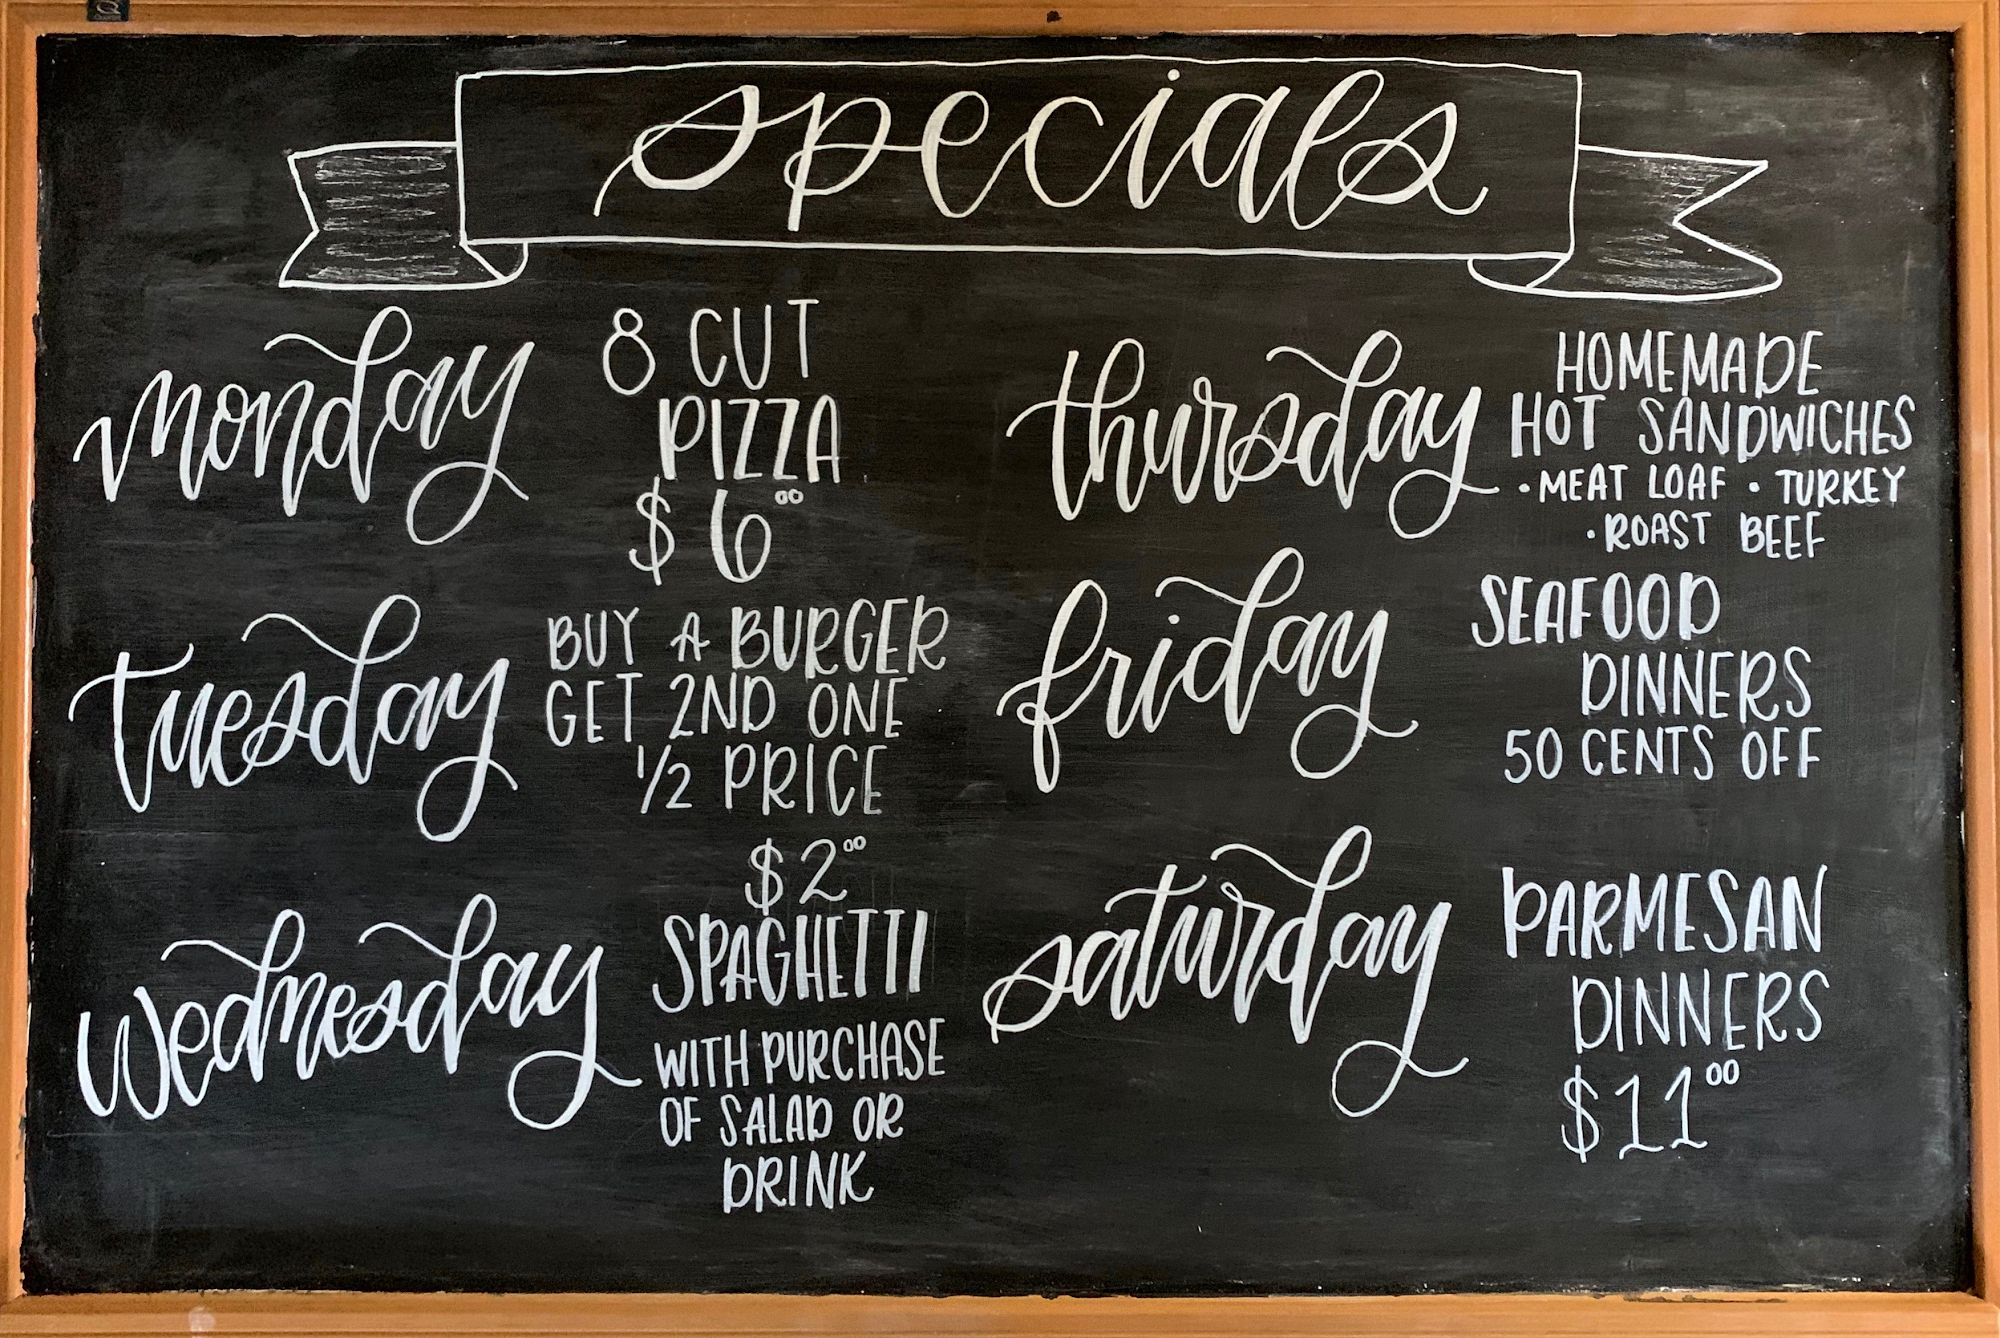 specials
monday
8 CUT
PIZZA
$6⁰⁰
tuesday
BUY A BURGER
GET 2ND ONE
1/2 PRICE
wednesday
$2⁰⁰
SPAGHETTI
WITH PURCHASE
OF SALAD OR
DRINK
thursday
HOMEMADE
HOT SANDWICHES
• MEAT LOAF • TURKEY
• ROAST BEEF
friday
SEAFOOD
DINNERS
50 CENTS OFF
saturday
PARMESAN
DINNERS
$11⁰⁰